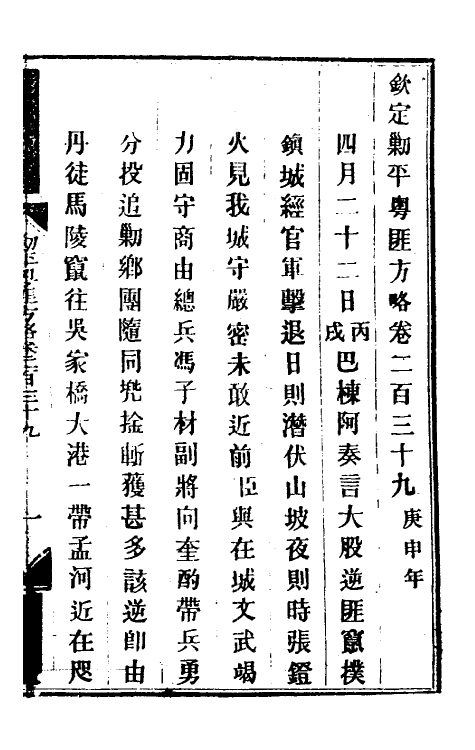 欽定勦平粵匪方略卷二百三十九庚申年
四月二十二日丙戌巴棟阿奏言大股逆匪竄撲
鎮城經官軍擊退日則潛伏山坡夜則時張鐙
火見我城守嚴密未敢近前臣與在城文武竭
力固守商由總兵馮子材副將向奎酌帶兵勇
分投追勦鄉團隨同兜捡斬獲甚多該逆卽由
丹徒馬陵竄往吳家橋大港一帶孟河近在咫
方略卷二百三十九
一